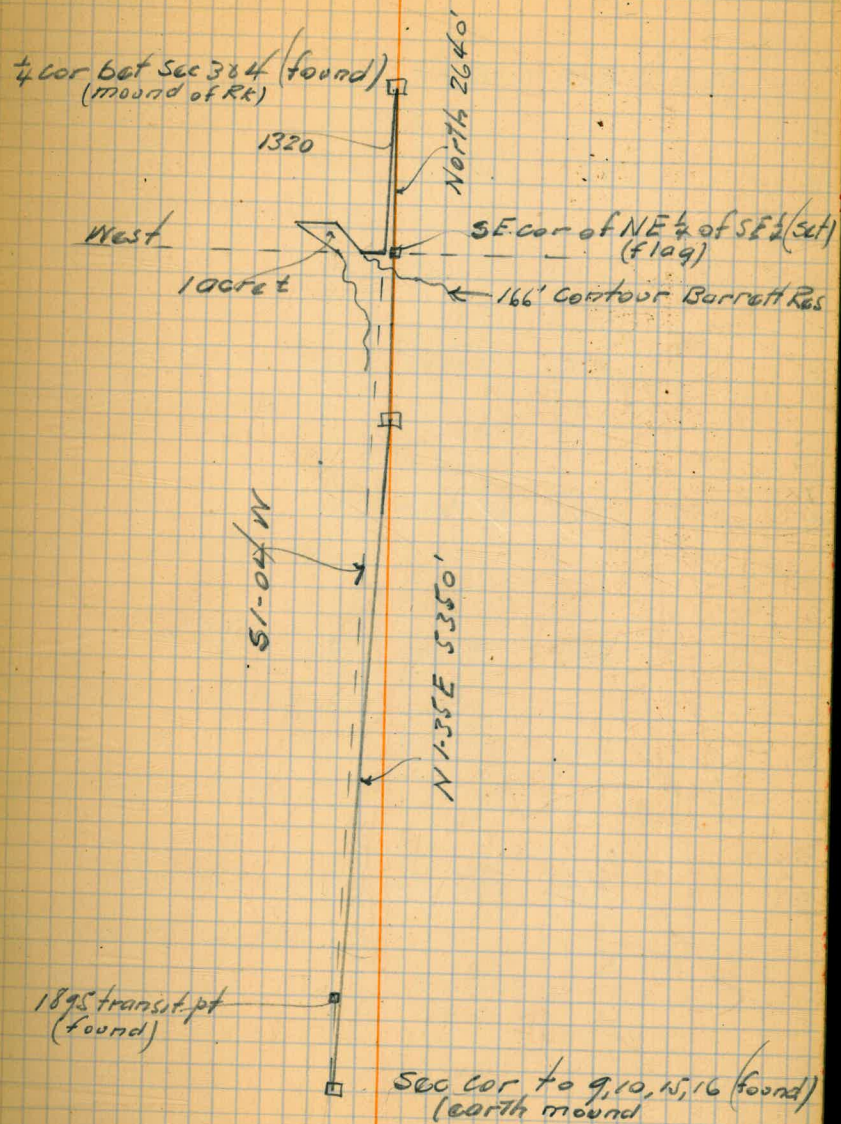 ¼ cor bet Sec 3 & 4 (found)
(mound of Rk)
1320
North 2640'
West
SE cor of NE ¼ of SE ¼ (set)
(flag)
1 acre ±
166' Contour Barrett Res
S1-04 W
N 1-35 E 5350'
1895 transit pt
(found)
Sec cor to 9, 10, 15, 16 (found)
(earth mound